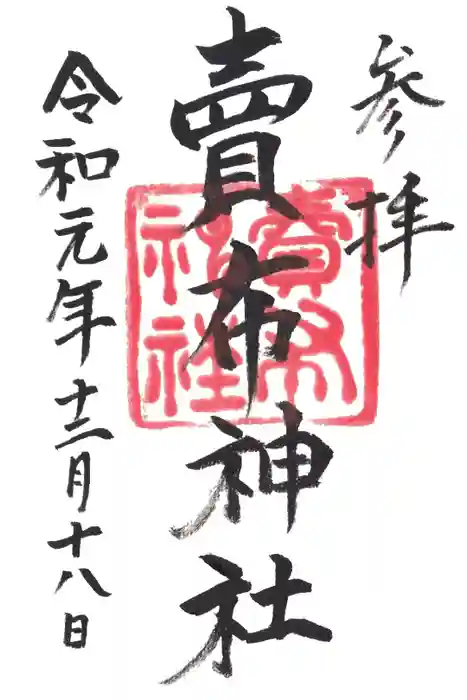 参拝
賣布神社
令和元年十二月十八日
賣布
神社